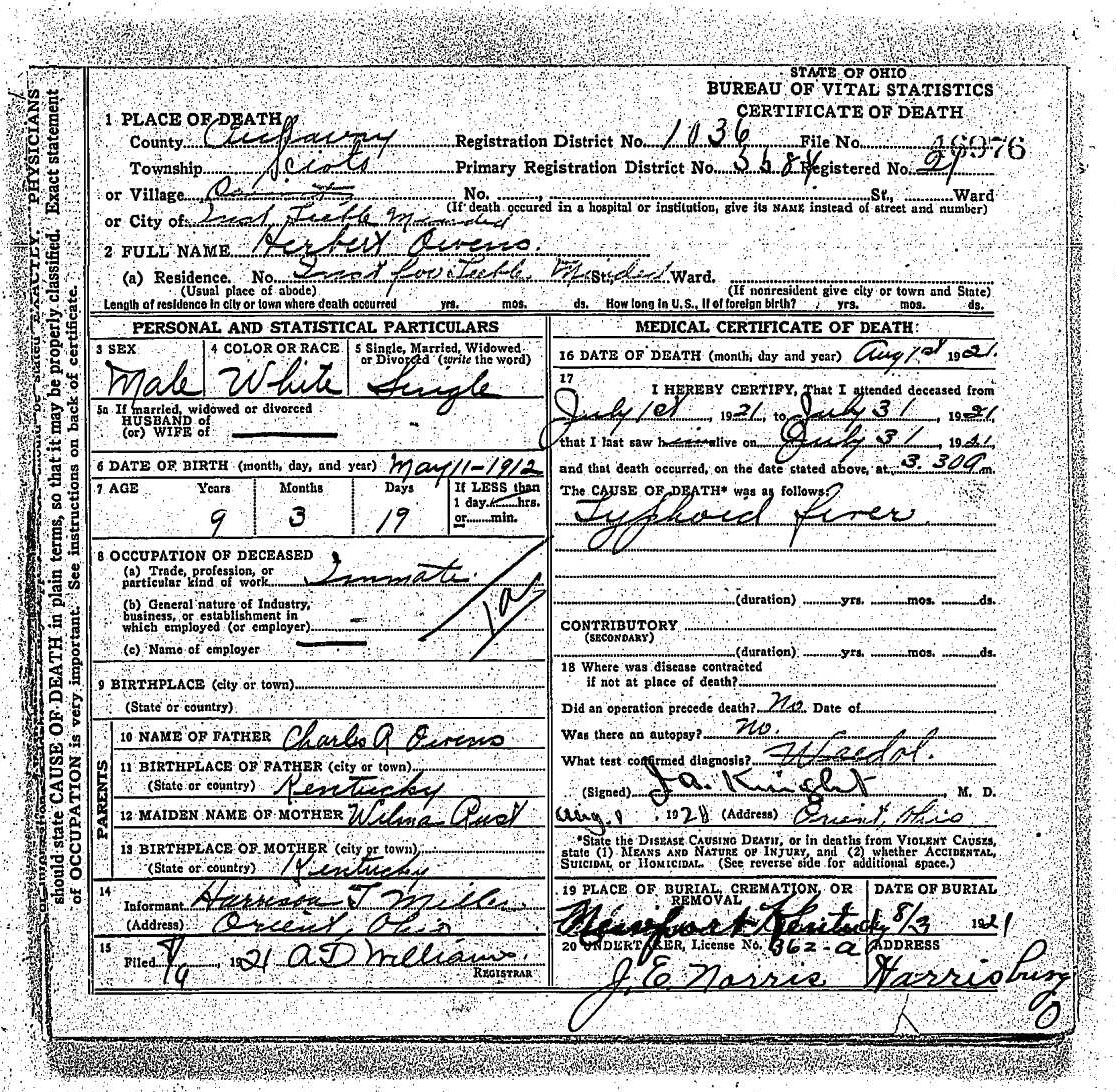 STATE OF OHIO
BUREAU OF VITAL STATISTICS
CERTIFICATE OF DEATH
1 PLACE OF DEATH
County Registration District No. 1036 File No. 46976
Township Scioto Primary Registration District No. 3584 Registered No. 29
or Village No. St., Ward
(If death occured in a hospital or institution, give its NAME instead of street and number)
or City of Inst Feeble Minded
2 FULL NAME Herbert Owens.
(a) Residence. No. Inst for Feeble Minded St., Ward.
(Usual place of abode) (If nonresident give city or town and State)
Length of residence in city or town where death occurred yrs. mos. ds. How long in U.S., if of foreign birth? yrs. mos. ds.
PERSONAL AND STATISTICAL PARTICULARS
3 SEX 4 COLOR OR RACE 5 Single, Married, Widowed or Divorced (write the word)
Male White Single
5a If married, widowed or divorced
HUSBAND of
(or) WIFE of
6 DATE OF BIRTH (month, day, and year) May 11-1912
7 AGE Years Months Days If LESS than
1 day, hrs.
9 3 19 or min.
8 OCCUPATION OF DECEASED
(a) Trade, profession, or
particular kind of work Inmate
(b) General nature of Industry,
business, or establishment in
which employed (or employer)
(c) Name of employer
9 BIRTHPLACE (city or town)
(State or country)
PARENTS
10 NAME OF FATHER Charles A Owens
11 BIRTHPLACE OF FATHER (city or town)
(State or country) Kentucky
12 MAIDEN NAME OF MOTHER Wilma Rust
13 BIRTHPLACE OF MOTHER (city or town)
(State or country) Kentucky
14
Informant Harrison T Miller
(Address) Orient, Ohio
15
Filed 1921 A D Williams.
REGISTRAR
MEDICAL CERTIFICATE OF DEATH
16 DATE OF DEATH (month, day and year) Aug 1st 1921.
17
I HEREBY CERTIFY, That I attended deceased from
July 1st, 1921, to July 31, 1921,
that I last saw him alive on July 31, 1921,
and that death occurred, on the date stated above, at 3.30 a m.
The CAUSE OF DEATH* was as follows:
Typhoid fever.
(duration) yrs. mos. ds.
CONTRIBUTORY
(SECONDARY)
(duration) yrs. mos. ds.
18 Where was disease contracted
if not at place of death?
Did an operation precede death? No Date of
Was there an autopsy? No.
What test confirmed diagnosis? Waedol.
(Signed) J.A. Knight, M. D.
Aug. 1, 1921 (Address) Orient, Ohio
*State the DISEASE CAUSING DEATH, or in deaths from VIOLENT CAUSES,
state (1) MEANS AND NATURE OF INJURY, and (2) whether ACCIDENTAL,
SUICIDAL or HOMICIDAL. (See reverse side for additional space.)
19 PLACE OF BURIAL, CREMATION, OR REMOVAL DATE OF BURIAL
Newport Kentucky 8/3 1921
20 UNDERTAKER, License No. 362-a ADDRESS
J. E. Norris Harrisburg O
PHYSICIANS
should state CAUSE OF DEATH in plain terms, so that it may be properly classified. Exact statement
of OCCUPATION is very important. See instructions on back of certificate.